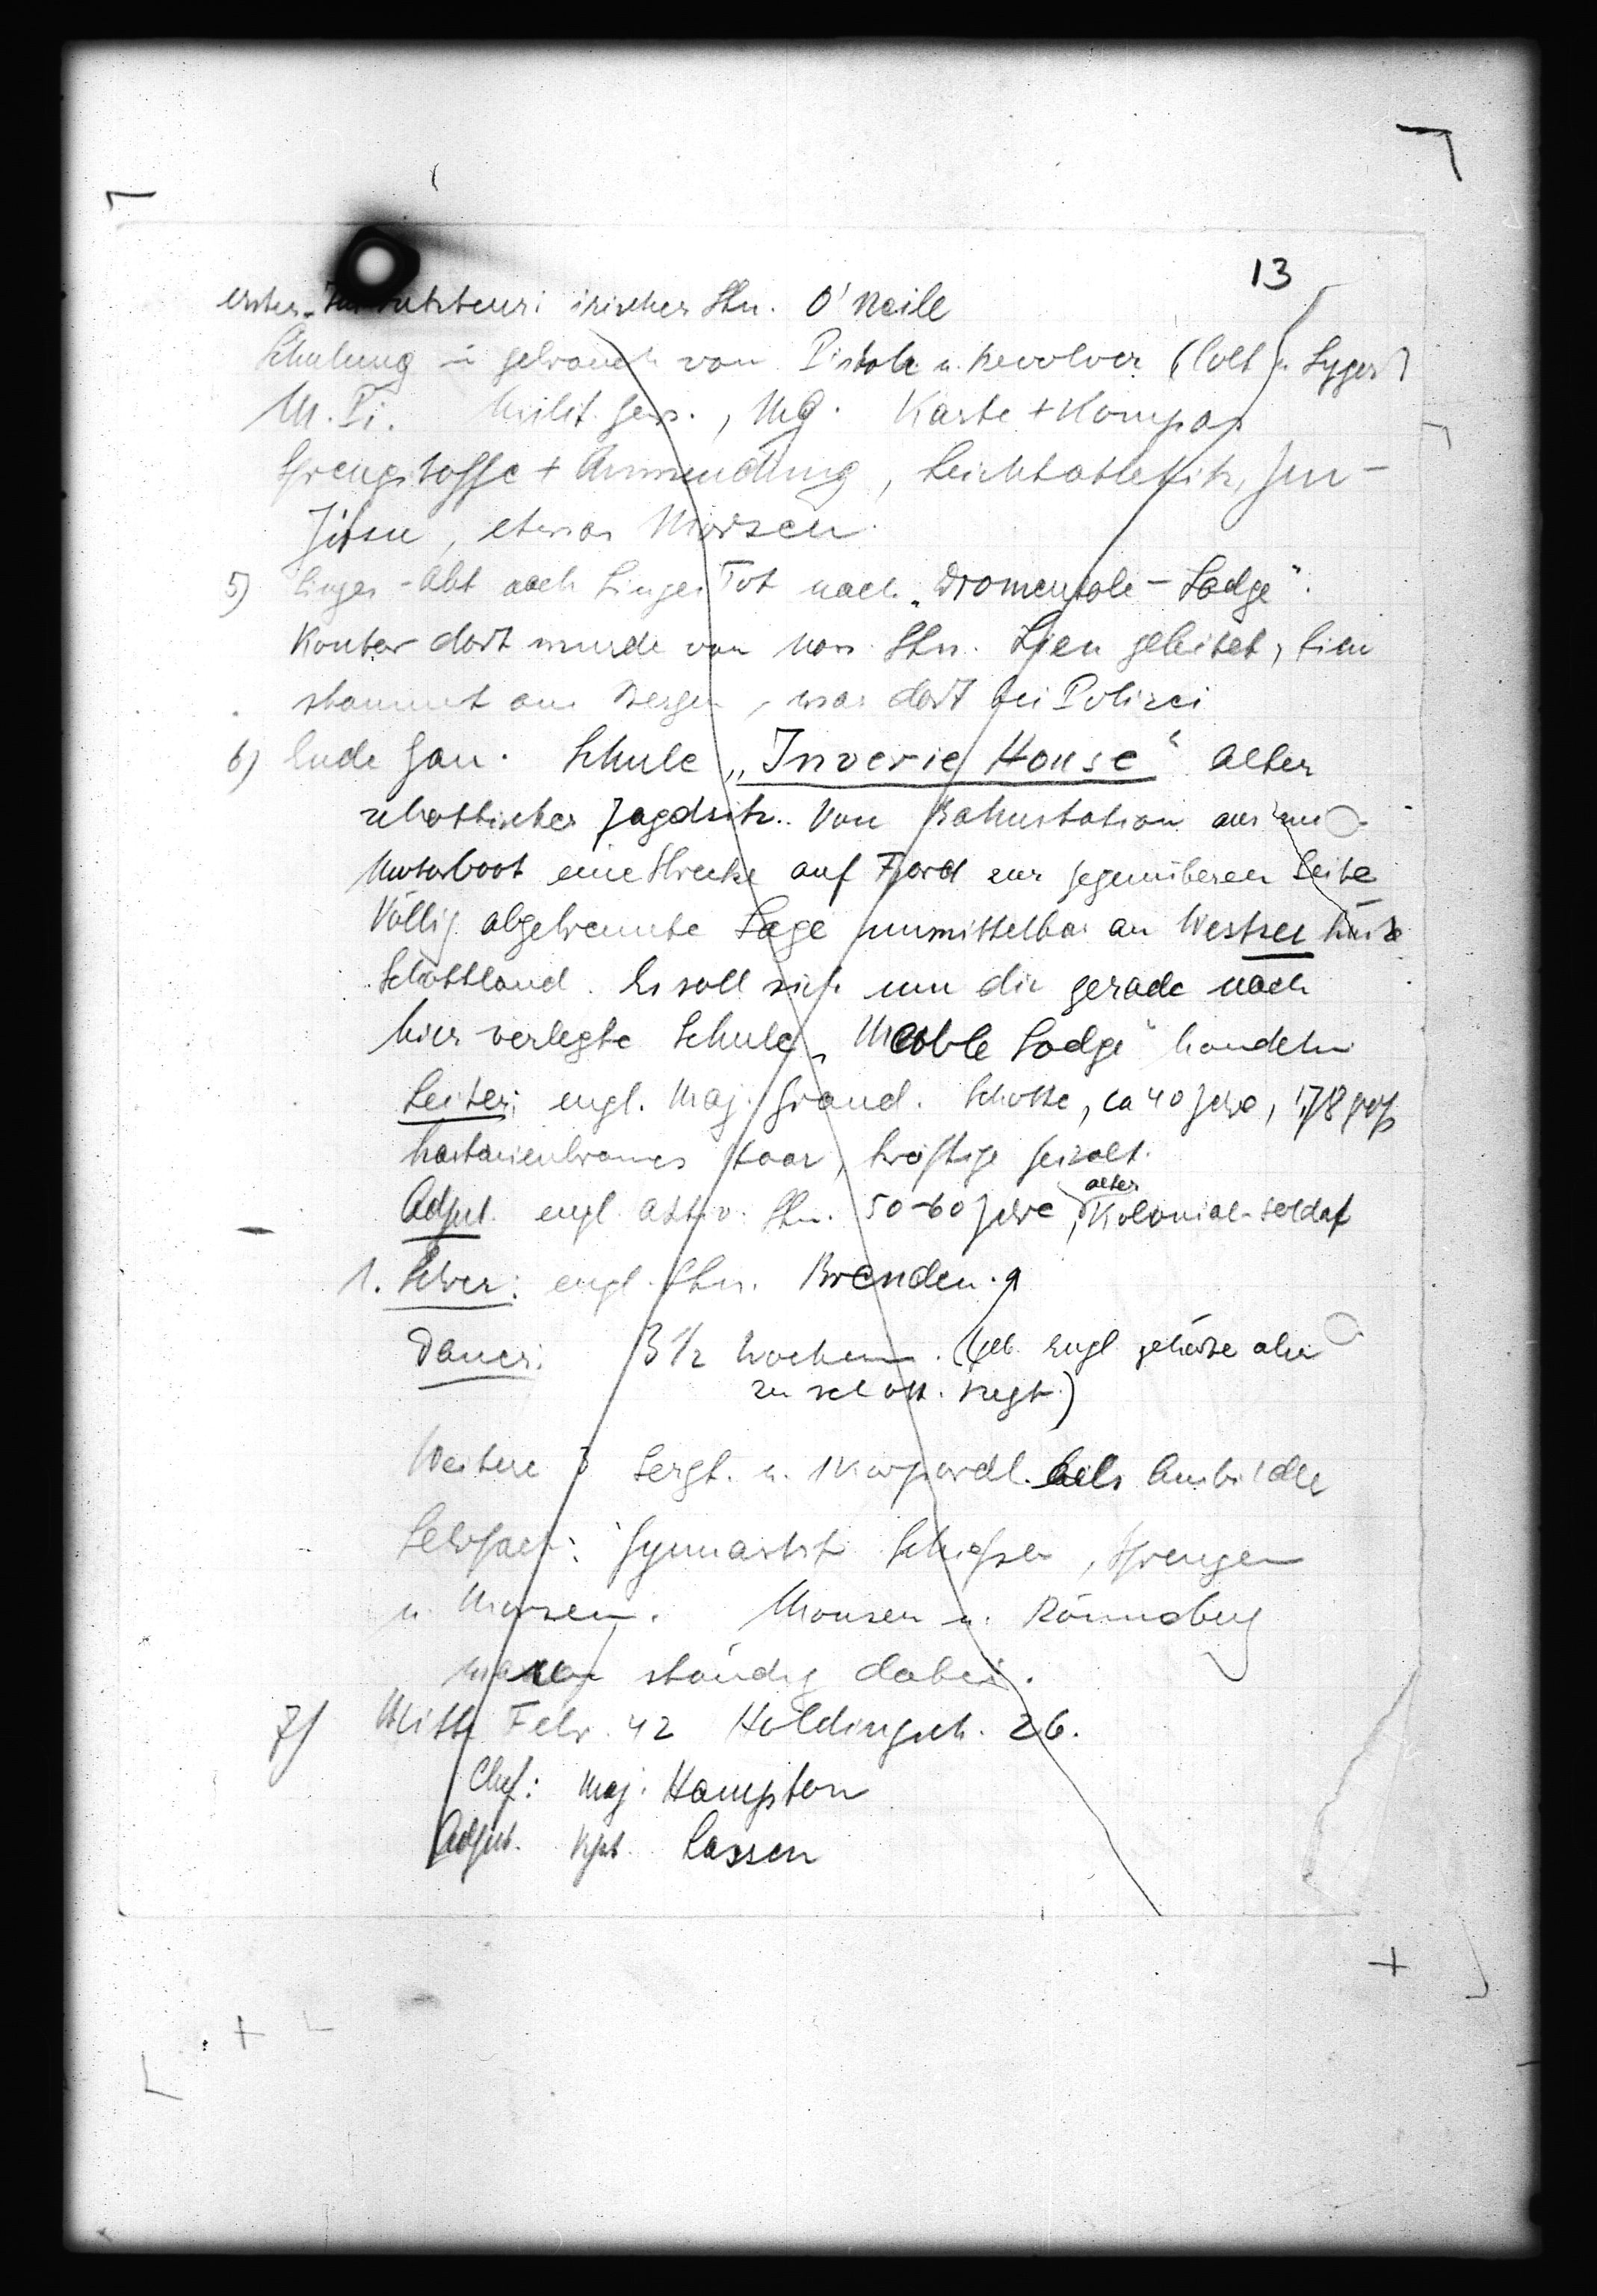 13
erster Instrukteur: irischer Ltn. O'Neile
Schulung in gebrauch von Pistole u. Revolver (Colt u.
M. Pi. Milit. Gew., MG. Karte + Kompaß
Sprengstoffe + Anwendung, Leichtatletik, Jiu-
Jitsu, etwas Morsen.
5) nach nach „Dromentole - Lodge".
Kontor dort wurde von norw. Ltn. Lien geleitet, Lien
stammt aus Bergen, war dort bei Polizei
6) Ende Jan. Schule „Inverie House" alter
schottischer Jagdsitz. Von Bahnstation aus mit
Motorboot eine Strecke auf Fjord zur gegenüberen Seite
Völlig abgetrennte Lage unmittelbar an Westsee küste
Schottland. Es soll sich um die gerade nach
hier verlegte Schule „Meoble Lodge" handeln
Leiter: engl. Maj. Grand. Schotte, ca 40 Jahre, 1,78 groß
kastanienbraunes Haar, kräftige Gestalt.
alter
Adjut. engl. aktiv. Ltn. 50-60 Jahre, Kolonial-soldat
1. Lehrer: engl. Ltn. Brenden.
Dauer: 3 1/2 Wochen. (geb. Engl gehörte aber
zu schott. Regt.)
Weitere 3 Sergt. u. 1 Korporal. als Ausbilder
Lehrfach: Gymnastik Schießen, Sprengen
u. Morsen. Monsen u. Rönneberg
waren ständig dabei.
7) Mitte Febr. 42 Holdingsch. 26.
Chef: Maj. Hampton
Adjut. Kpt. Lassen